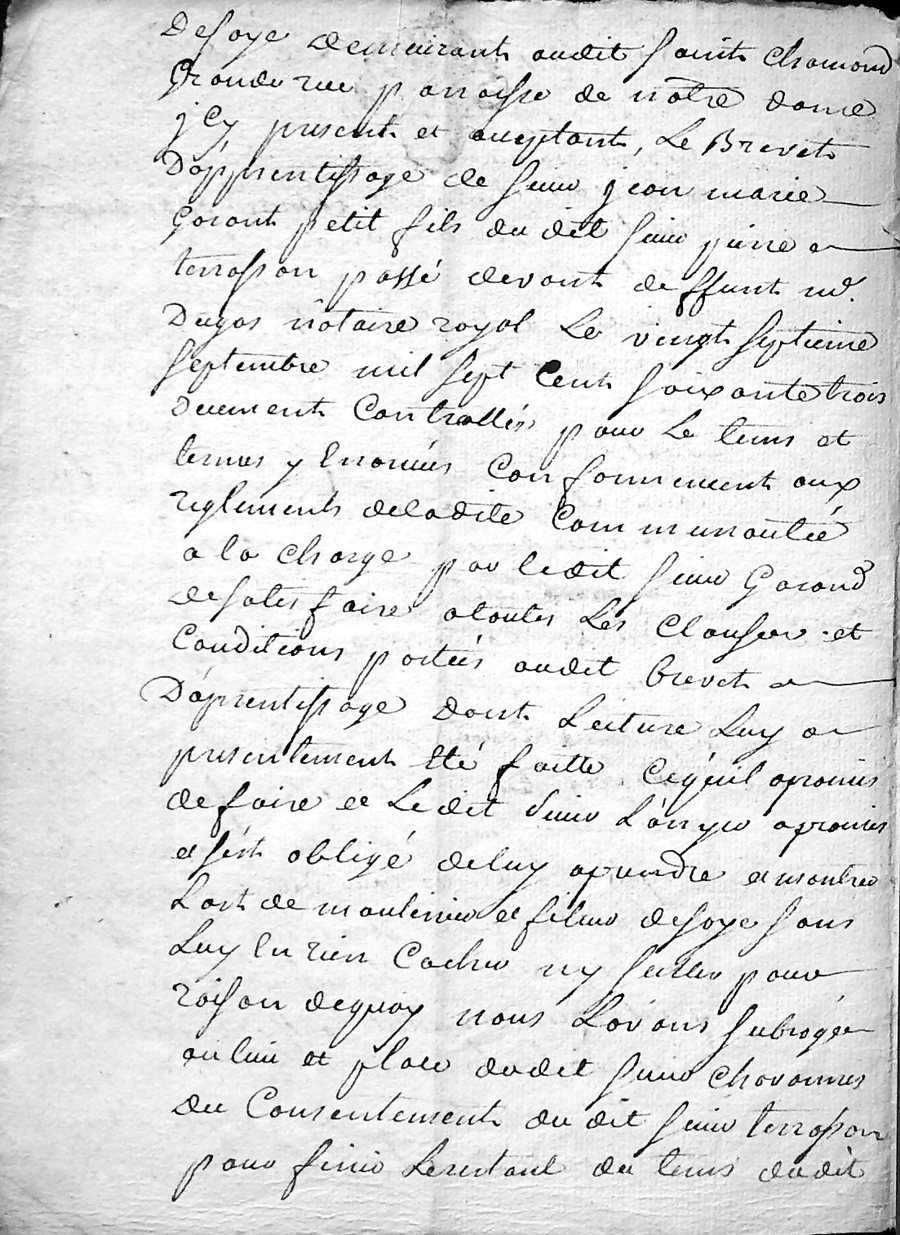 desoye demeurant audit Saint Chamond
Grande rue parroisse de nôtre dame
jcy present et acceptant, Le Brevet
D'apprentissage de sieur jean marie
Garant petit fils du dit sieur pierre
terrasson passé devant deffunt me.
Dugas nôtaire royal Le vingt septieme
septembre mil sept Cent soixante trois
Duement Controllés pour Le tems et
termes y Enoncés Conformement aux
reglements deladite Communautée
a la charge par ledit sieur Garand
desatisfaire atoutes Les Clauses et
Conditions portées audit brevet
D'aprentissage dont Lecture Luy a
presentement été faitte Cequil apromis
defaire et Ledit sieur apromis
et sést obligé deluy aprendre et montrer
Lart de moulinier et fileur desoye sans
Luy En rien Cacher ny seller pour
raison dequoy nous L'avons subrogée
au lieu et place dudit sieur Chavannes
du Consentement du dit sieur terrasson
pour finir Lerestant du tems dudit